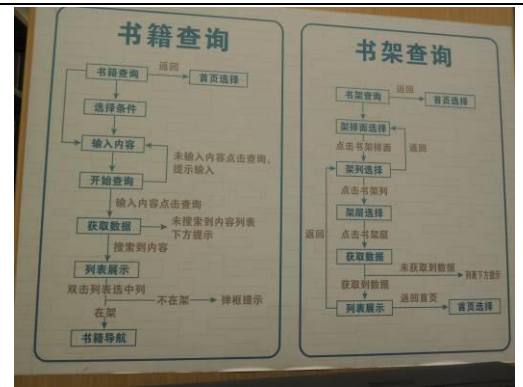 书籍查询
书籍查询
返回
首页选择
选择条件
输入内容
未输入内容点击查询,
提示输入
开始查询
输入内容点击查询
获取数据
未搜索到内容列表
下方提示
搜索到内容
列表展示
双击列表选中列
不在架
弹框提示
在架
书籍导航
书架查询
书架查询
返回
首页选择
架排面选择
点击书架排面
返回
架列选择
点击书架列
架层选择
返回
点击书架层
获取数据
未获取到数据
列表下方提示
获取到数据
列表展示
返回首页
首页选择